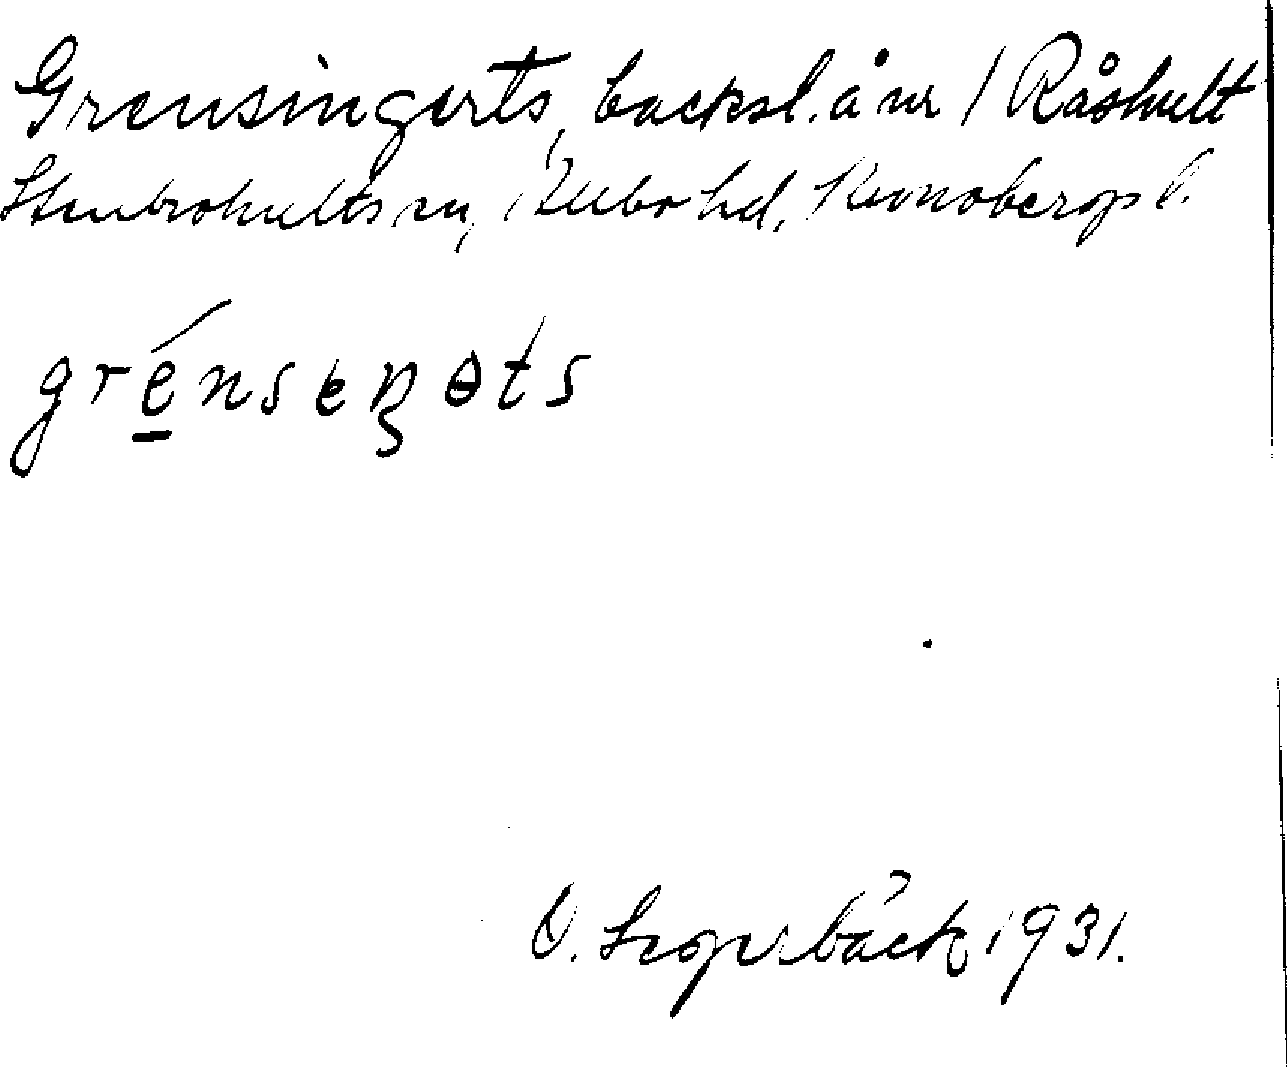 Grensingerts, backsl. å nr 1 Råshult
Stenbrohults sn, Allbo hd, Kronobergs l.
grénseŋɵts
O. Segerbäck 1931.